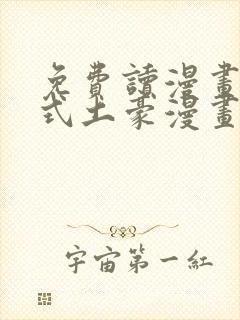 免費讀漫畫
式土豪漫畫
宇宙第一紅